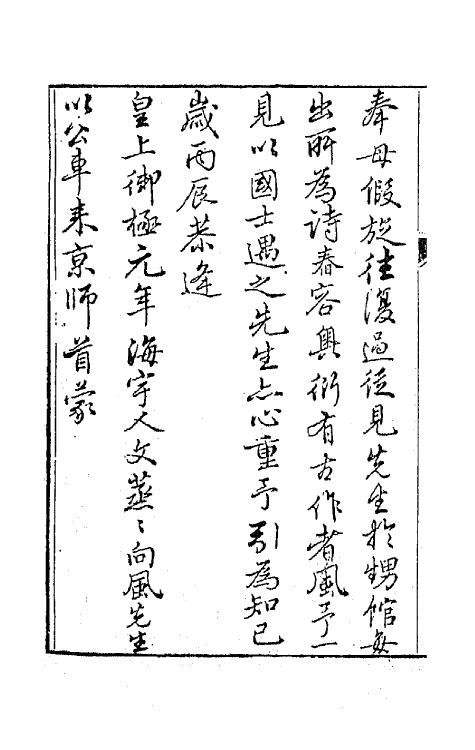 奉母假旋往復過從見先生於甥館每
出所為詩舂容輿衍有古作者風予一
見以國士遇之先生亦心重予引為知已
歲丙辰恭逢
皇上御極元年海宇人文蒸〻向風先生
以公車来京師首蒙